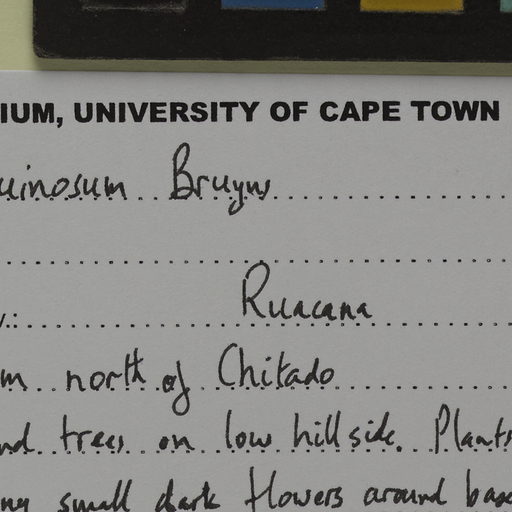 IUM, UNIVERSITY OF CAPE TOWN
uinosum Bruyns
y.: Ruacana
m north of Chitado
nd trees on low hillside. Plants
ny small dark flowers around base